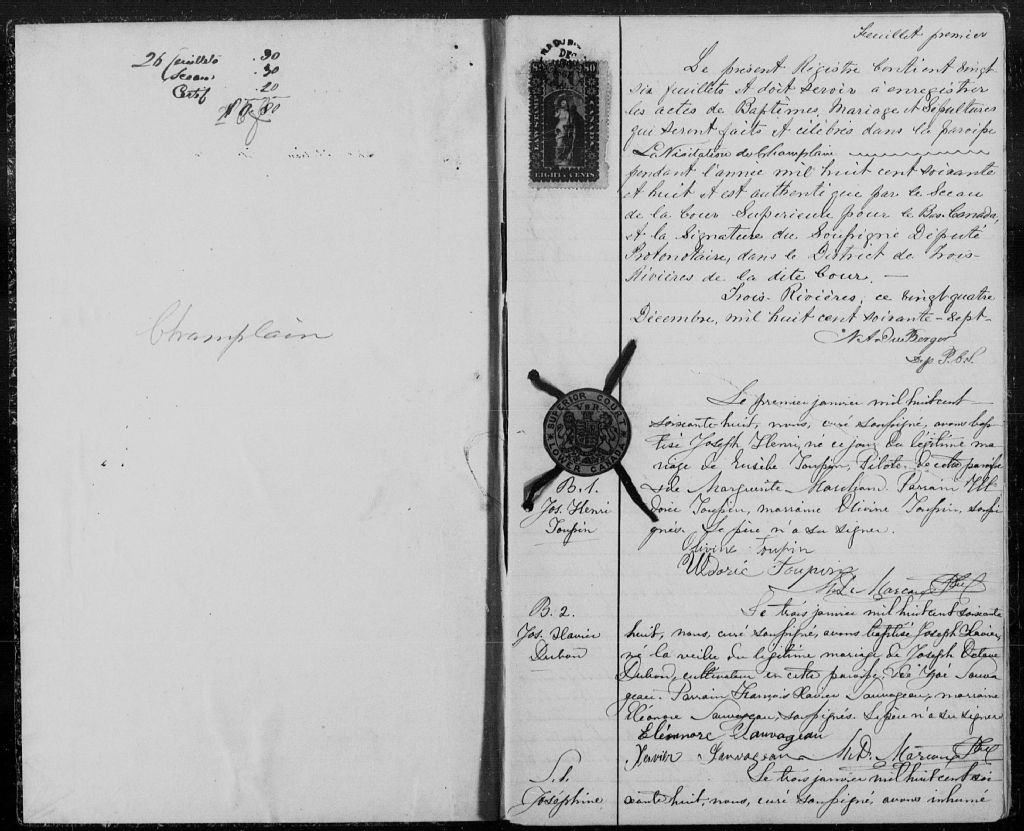 26 feuillets .30
Sceau .30
Certif .20
.80
Champlain
Feuillet premier
DEC
80 80
LAW STAMP
CANADA
EIGHTY CENTS
Le présent Régistre contient vingt
six feuillets et doit servir à enregistrer
les actes de Baptêmes, Mariage et Sépultures
qui seront faits et célébrés dans la paroisse
La Visitation de Champlain
pendant l'année mil huit cent soixante
et huit et est authentiqué par le Sceau
de la Cour Superieure pour le Bas Canada,
et la Signature du Soussigné Député
Protonotaire, dans le District de Trois-
Rivières de la dite Cour. —
Trois-Rivières, ce vingt quatre
Décembre, mil huit cent soixante-sept-
Dep P.C.S.
SUPERIOR COURT
V R
LOWER CANADA
Le premier janvier mil huit cent
soixante huit, nous, curé soussigné, avons bap
tisé Joseph Henri, né ce jour du légitime ma
riage de Eusèbe Toupin, Pilote de cette paroisse
& de Marguerite Marchand. Parrain Ul
doric Toupin, marraine Olivine Toupin, soussi
gnés. Le père n'a su signer.
B. 1.
Jos. Henri
Toupin
Olivine Toupin
Uldoric Toupin
M. D. Marcoux Ptre
B. 2.
Jos. Xavier
Dubord
Le trois janvier mil huit cent soixante
huit, nous, curé soussigné, avons baptisé Joseph Xavier,
né la veille du légitime mariage de Joseph Octave
Dubord, cultivateur en cette paroisse, & de Zoé Sauva
geau. Parrain François Xavier Sauvageau, marraine
Eléonore Sauvageau, soussignés. Le père n'a su signer
Eléonore Sauvageau
Xavier Sauvageau M. D. Marcoux Ptre
S. 1.
Joséphine
Le trois janvier mil huit cent soi
xante huit, nous, curé soussigné, avons inhumé